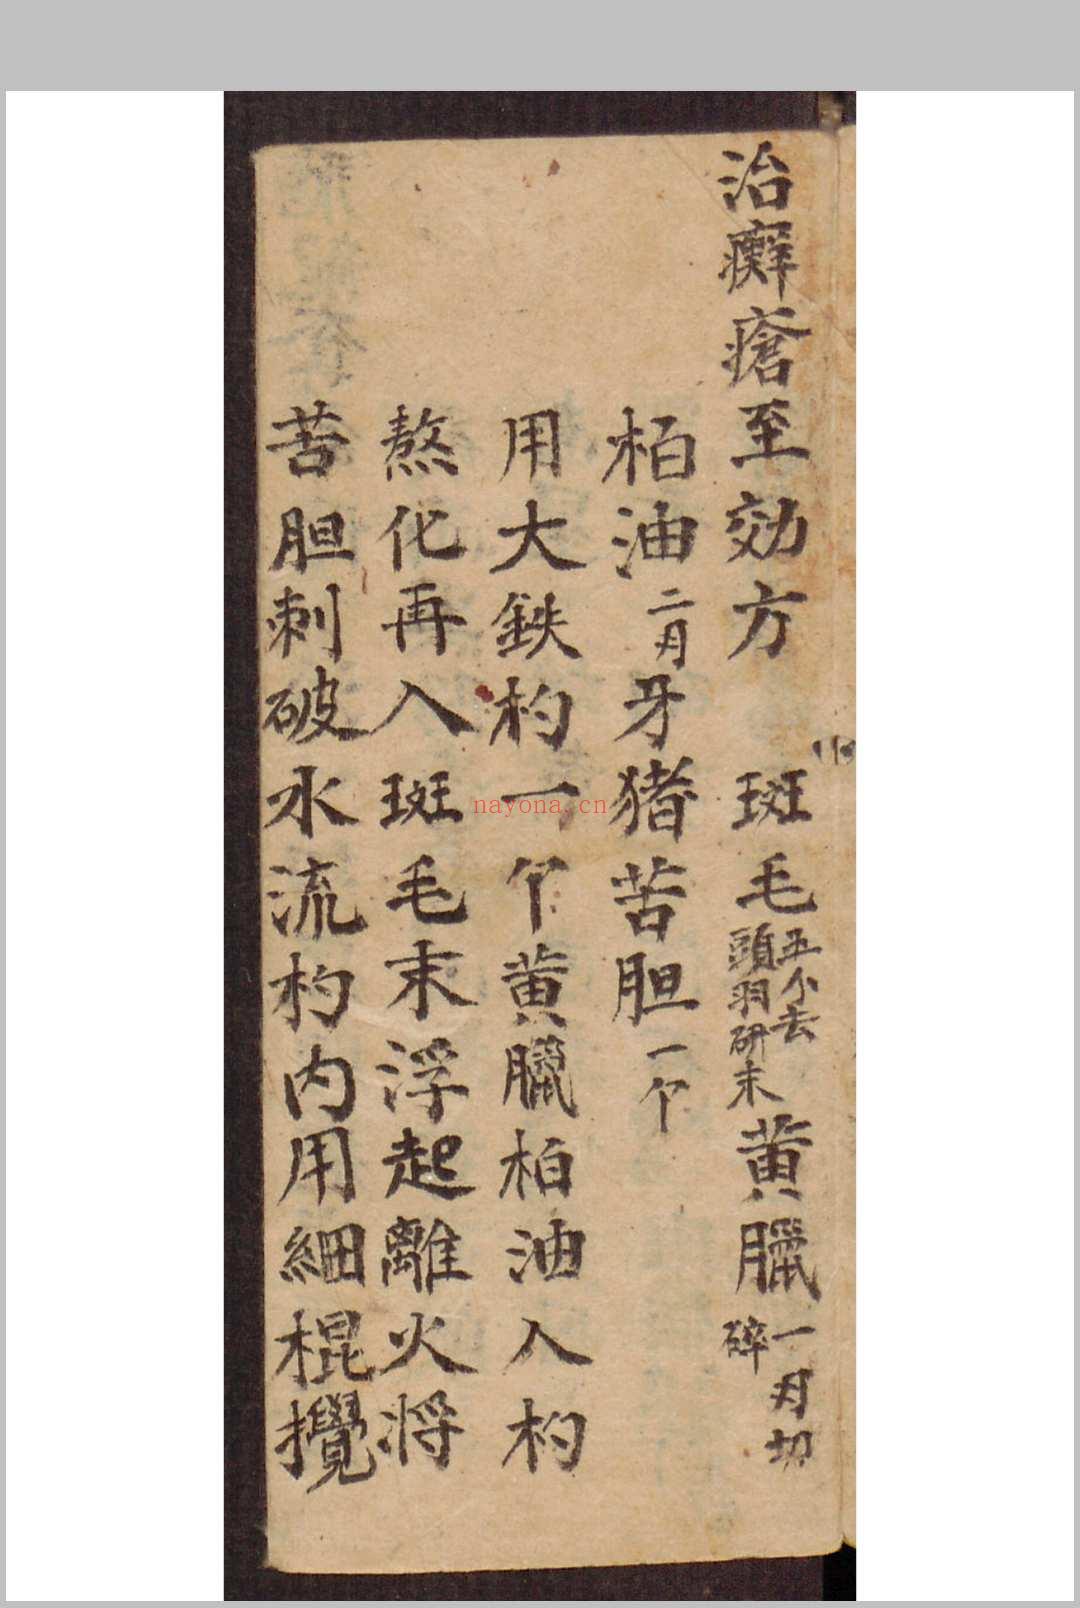 治癬瘡至効方　斑毛五个去頭羽研末黄臘一月切碎
柏油二月牙猪苦胆一个
用大鉄杓一个黄臘柏油入杓
熬化再入斑毛末浮起離火将
苦胆刺破水流杓内用細棍攪
nayona.cn